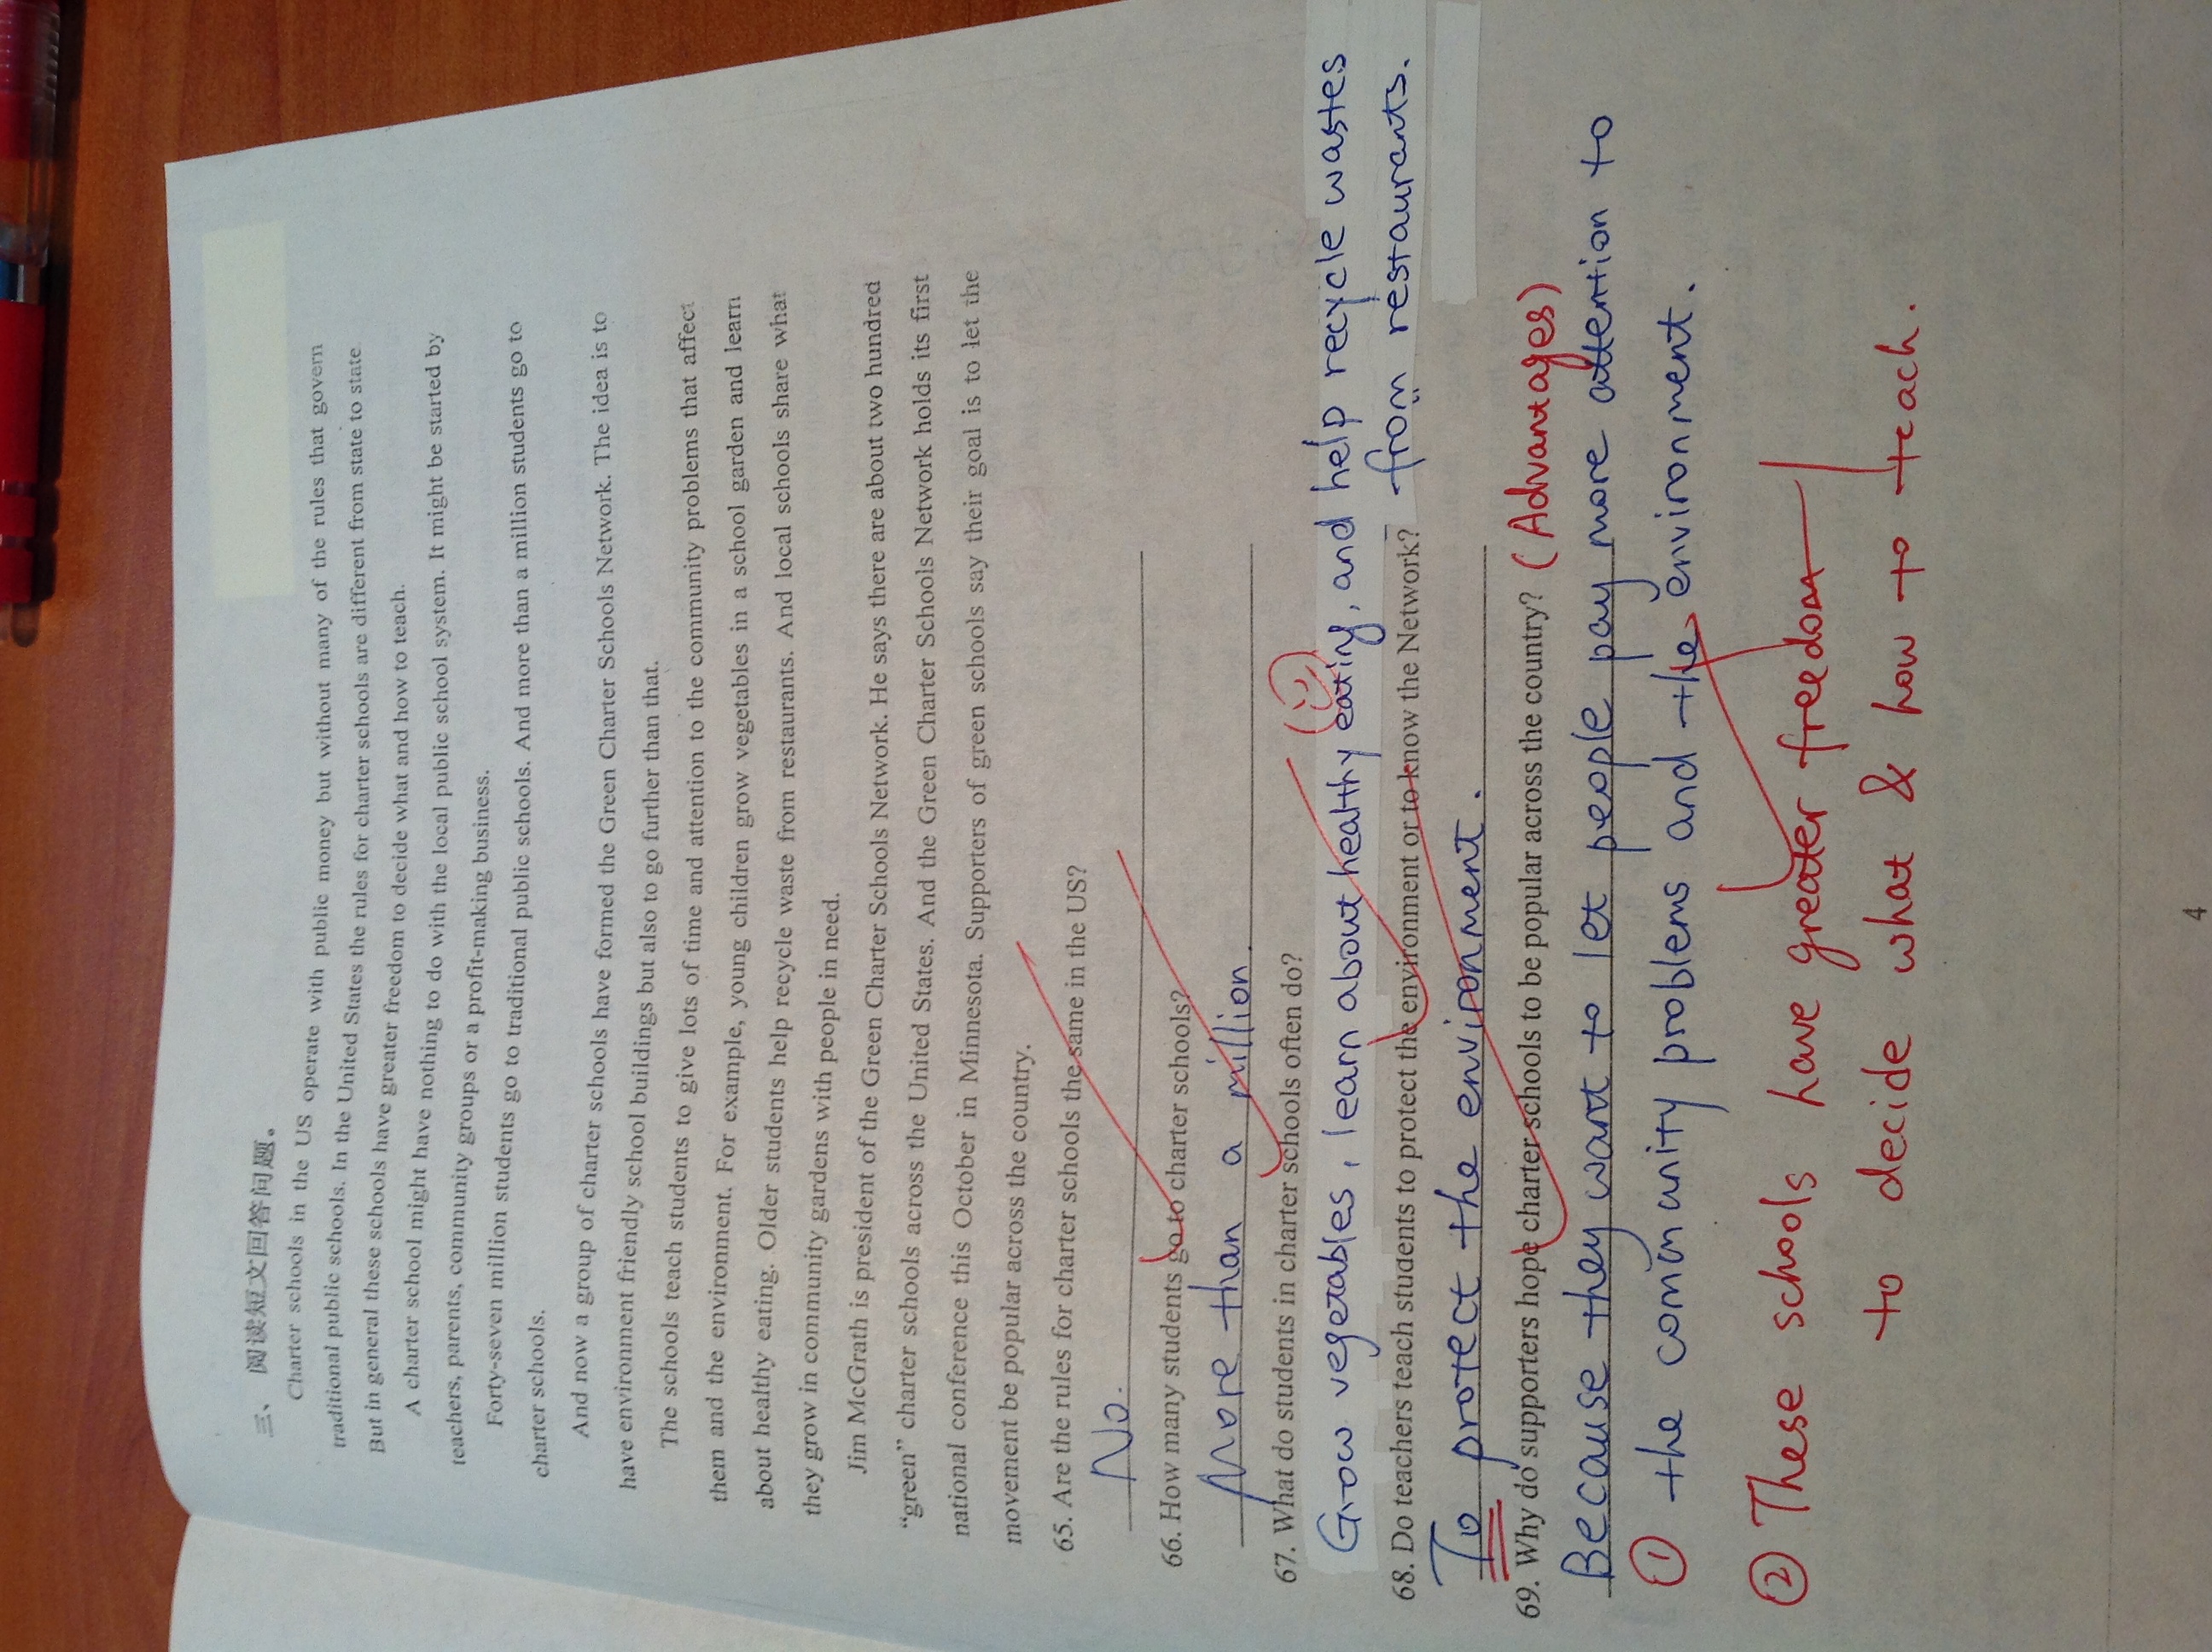 三、阅读短文回答问题。
Charter schools in the US operate with public money but without many of the rules that govern
traditional public schools. In the United States the rules for charter schools are different from state to state
But in general these schools have greater freedom to decide what and how to teach.
A charter school might have nothing to do with the local public school system. It might be started by
teachers, parents, community groups or a profit-making business.
Forty-seven million students go to traditional public schools. And more than a million students go to
charter schools.
And now a group of charter schools have formed the Green Charter Schools Network. The idea is to
have environment friendly school buildings but also to go further than that.
The schools teach students to give lots of time and attention to the community problems that affect
them and the environment. For example, young children grow vegetables in a school garden and learn
about healthy eating. Older students help recycle waste from restaurants. And local schools share what
they grow in community gardens with people in need.
Jim McGrath is president of the Green Charter Schools Network. He says there are about two hundred
“green” charter schools across the United States. And the Green Charter Schools Network holds its first
national conference this October in Minnesota. Supporters of green schools say their goal is to let the
movement be popular across the country.
65. Are the rules for charter schools the same in the US?
No.
66. How many students go to charter schools?
More than a million.
67. What do students in charter schools often do?
Grow vegetables, learn about healthy eating, and help recycle wastes
from restaurants.
68. Do teachers teach students to protect the environment or to know the Network?
To protect the environment.
69. Why do supporters hope charter schools to be popular across the country? (Advantages)
Because they want to let people pay more attention to
① the community problems and the environment.
② These schools have greater freedom
to decide what & how to teach.
4